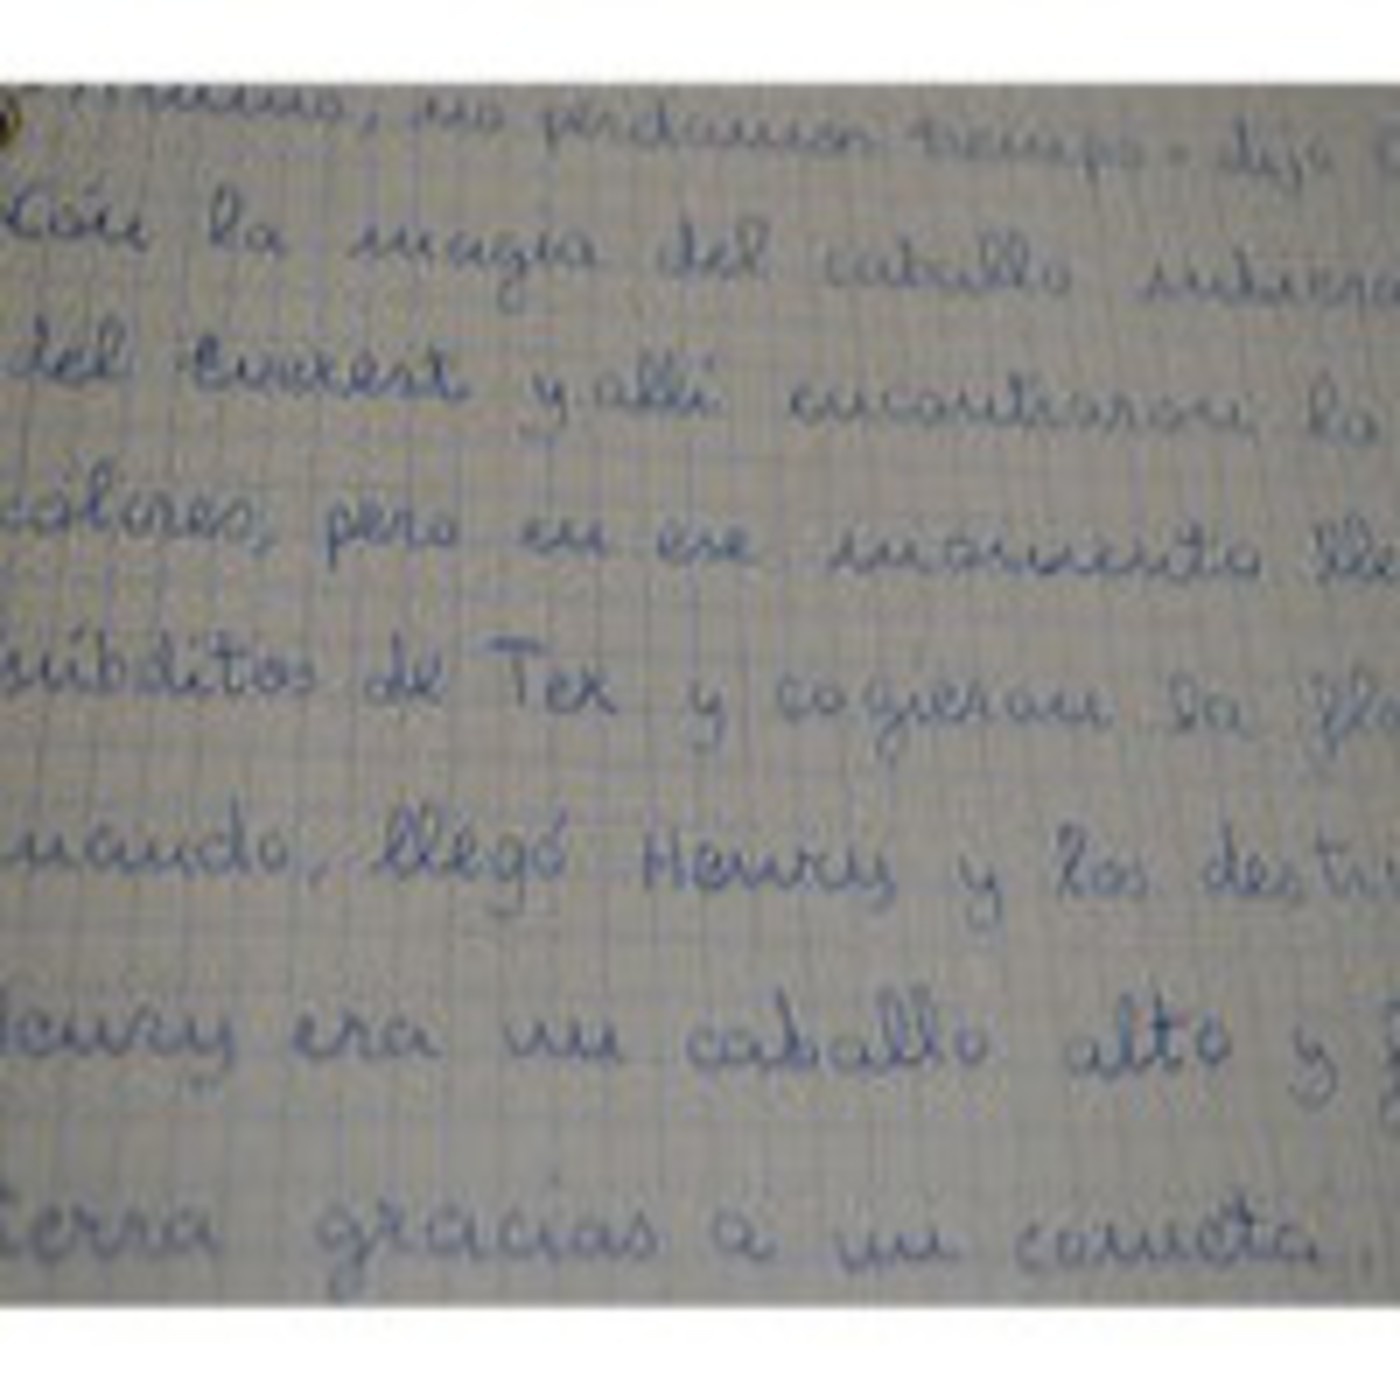 no perdamos tiempo - dijo
Con la magia del caballo subieron
del Everest y allí encontraron la
colores, pero en ese momento lle
súbditos de Tex y cogieron la flo
uando, llegó Henry y los destru
Henry era un caballo alto y
terra gracias a un cometa.